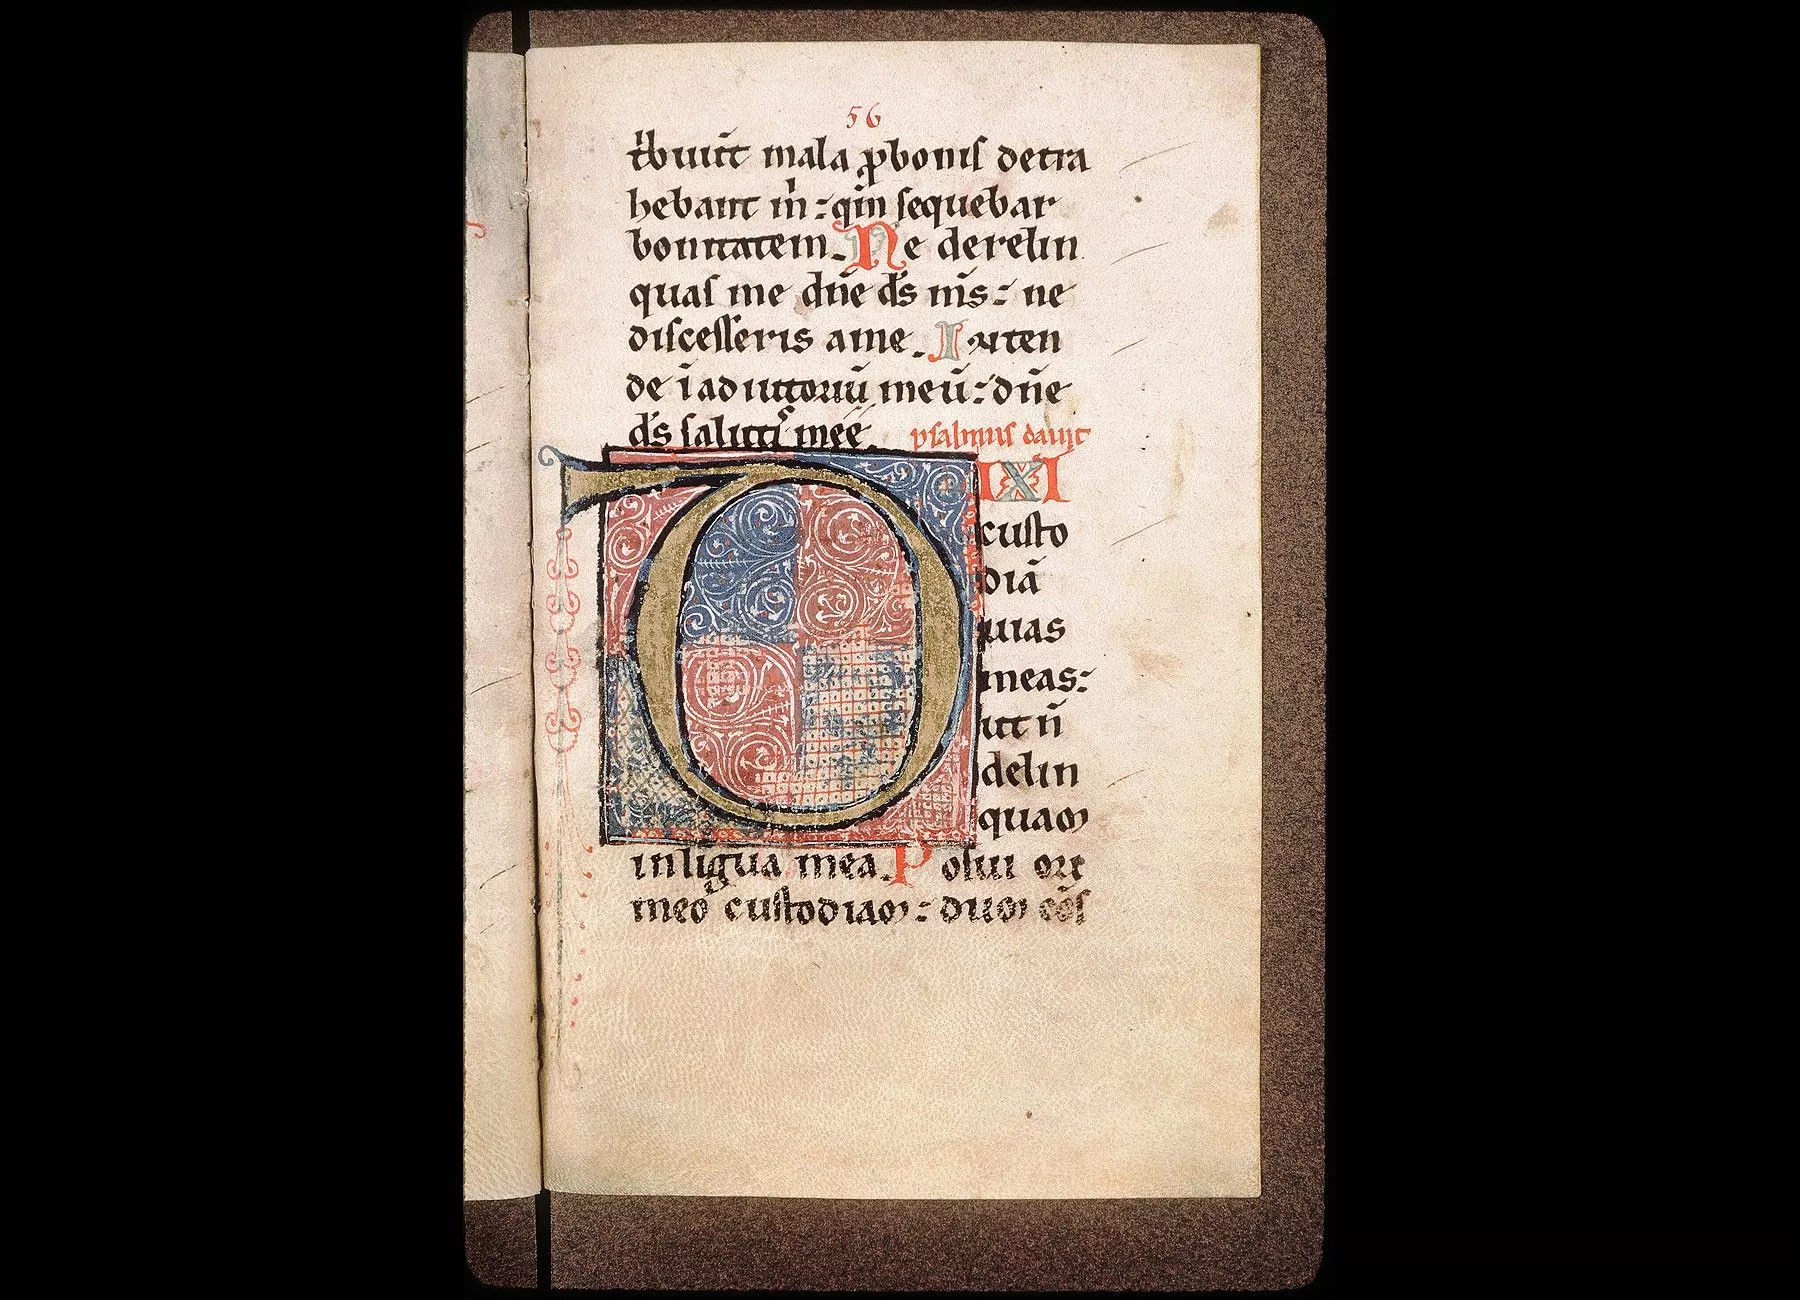 56
t̄buūt mala ꝓbonis detra
hebant m̄ : qm̄ sequebar
bonitatem. Ne derelin
quas me dn̄e ds̄ ms̄ : ne
discesseris ame. Inten
de ī adiutoriū meū : dn̄e
ds̄ salutꝭ meę. psalmus dauit
DIXI
custo
diā
uias
meas :
ut n̄
delin
quam
inligua mea. Posui ori
meo custodiam : dum cōs